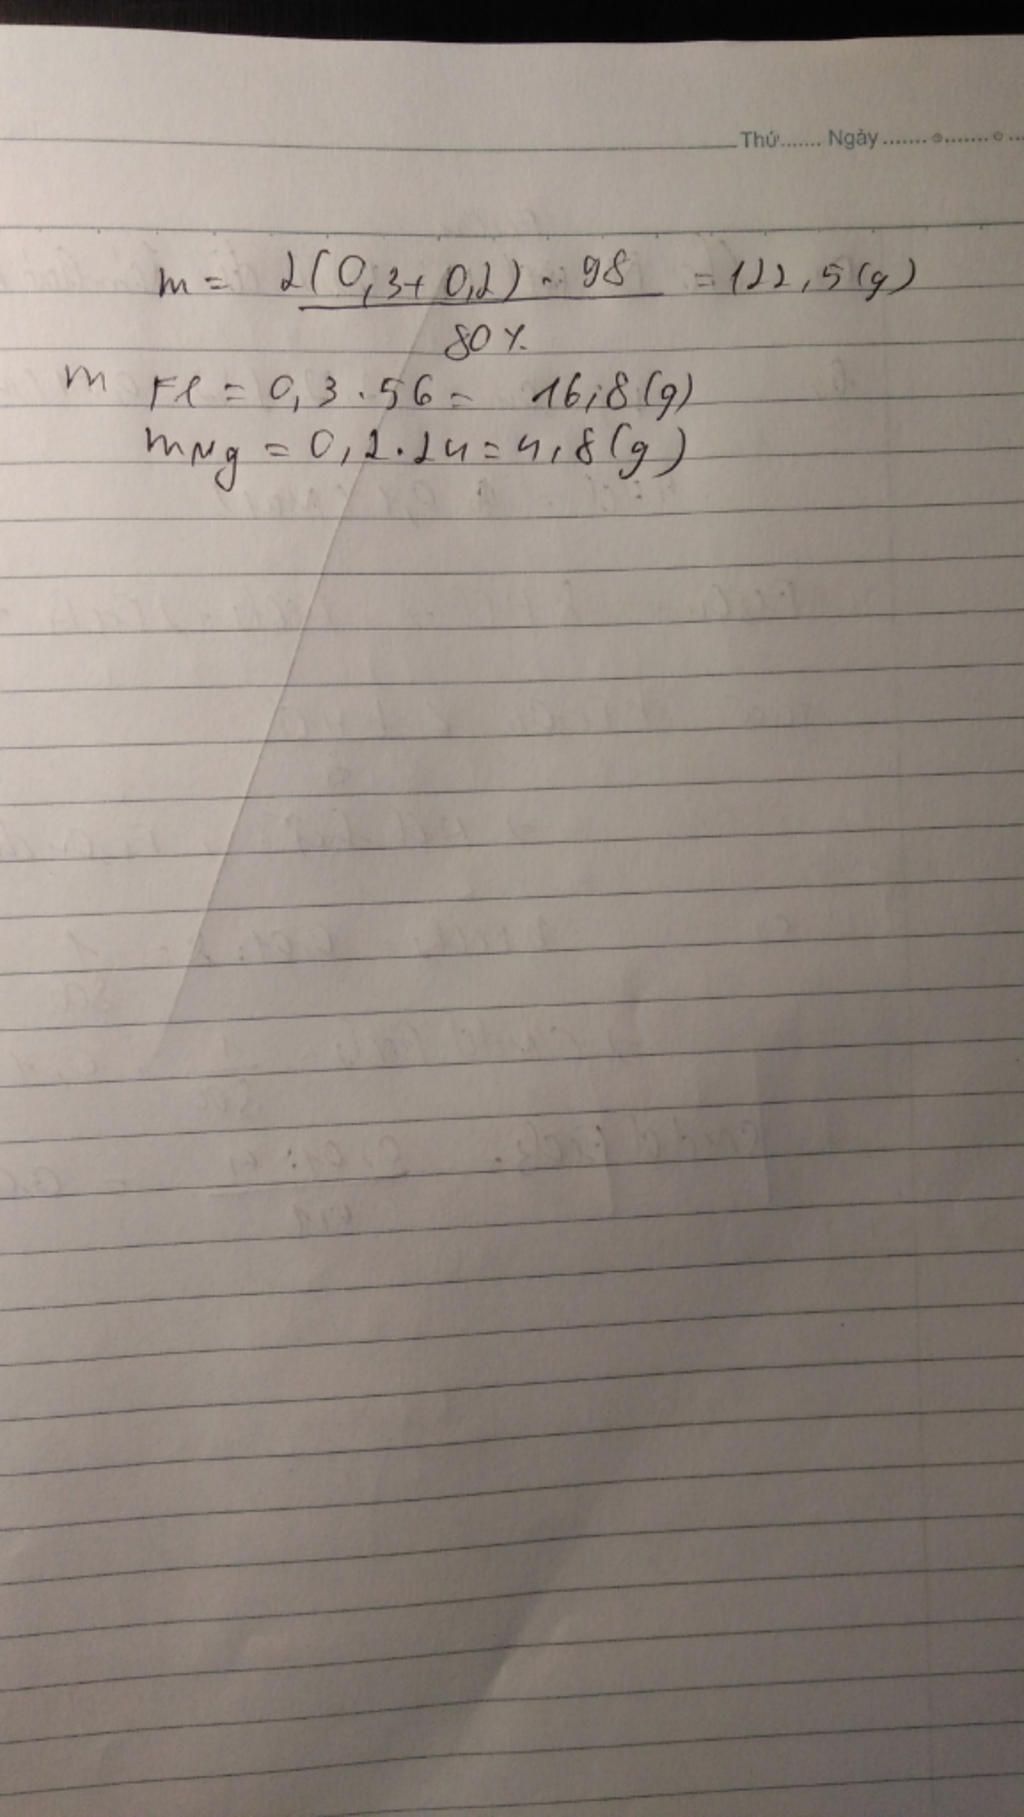 Thứ....... Ngày ....... o ....... o ...
m = 2(0,3+0,2) . 98 = 122,5(g)
80%
m Fe = 0,3 . 56 = 16,8(g)
mMg = 0,2 . 24 = 4,8(g)